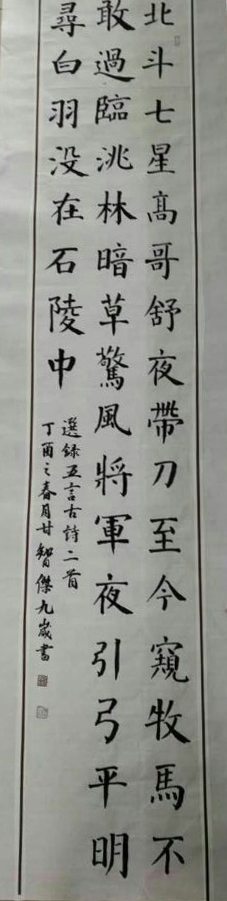 北斗七星高哥舒夜帶刀至今窺牧馬不
敢過臨洮林暗草驚風將軍夜引弓平明
尋白羽没在石陵中
選録五言古詩二首
丁酉之春月甘智傑九歲書